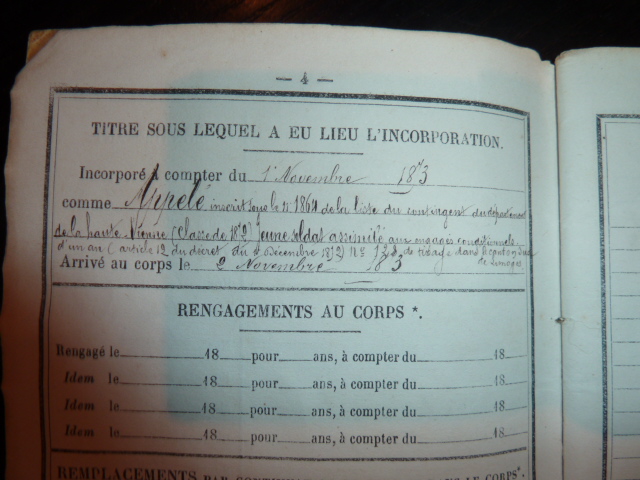 — 4 —
TITRE SOUS LEQUEL A EU LIEU L'INCORPORATION.
Incorporé à compter du 1er Novembre 1873
comme Appelé inscrit sous le n° 1864 de la liste du contingent du département
de la haute Vienne (Classe de 1872) Jeune soldat assimilé aux engagés conditionnels
d'un an (article 12 du décret du 1er Décembre 1872) N° 128 de tirage dans le canton de
de Limoges
Arrivé au corps le Novembre 1873
RENGAGEMENTS AU CORPS *.
Rengagé le 18 pour ans, à compter du 18
Idem le 18 pour ans, à compter du 18
Idem le 18 pour ans, à compter du 18
Idem le 18 pour ans, à compter du 18
REMPLACEMENTS PAR LE CORPS*.